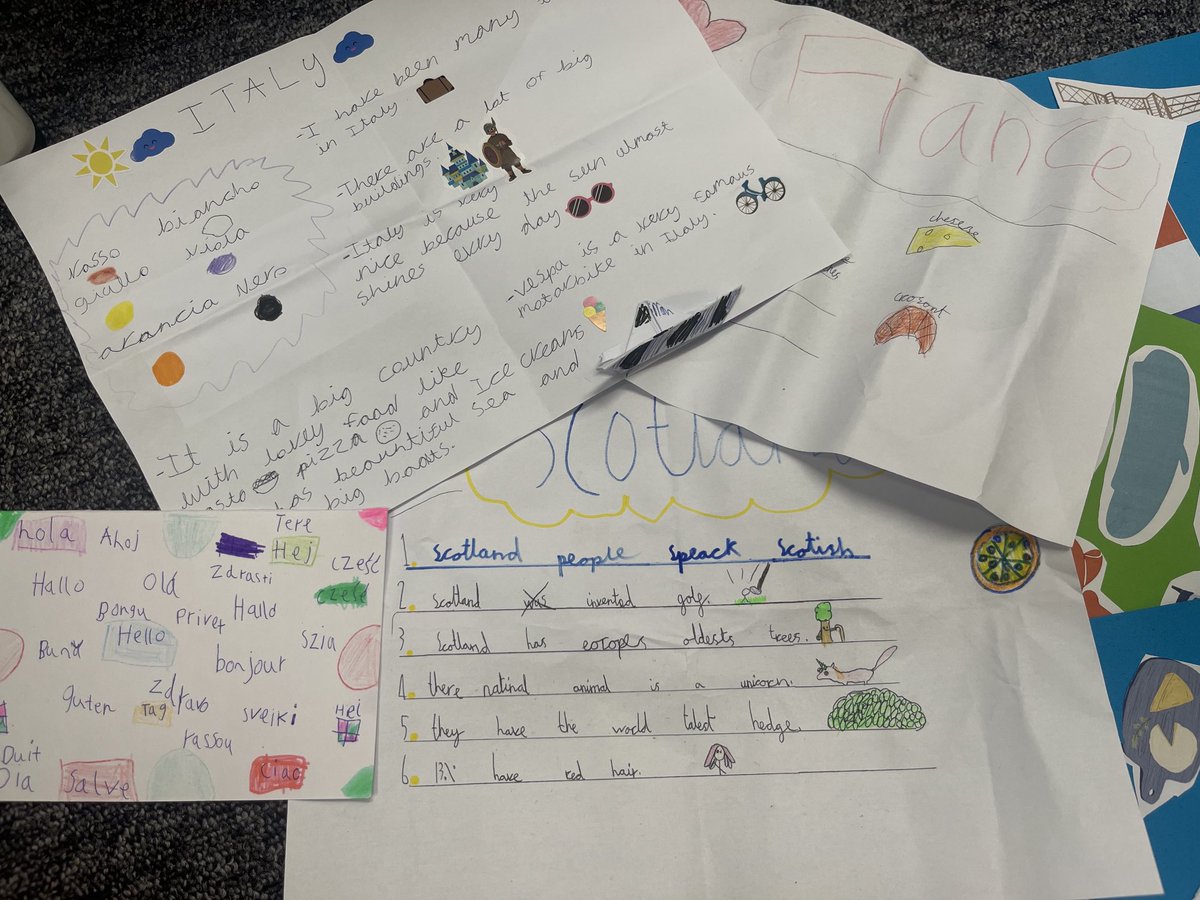 ITALY
rosso biancho
giallo viola
arancia Nero
-I have been many
in Italy.
-There are a lot of big
buildings.
-Italy is very
nice because the sun almost
shines evry day
-Vespa is a very famaus
motorbike in Italy.
-It is a big country
with lovely food like
pizza and Ice creams
has beautiful sea and
big boats.
France
cheese
crosont
Scotland
1. Scotland people speack scotish
2. Scotland was invented golg.
3 Scotland has eoropes oldests trees.
4. there natinal animal is a unicorn.
5. they have the world talest hedge.
6. 13% have red hair.
hola Ahoj Tere
Hej cześć
Hallo Olá Zdrasti cześć
Bongu privet Hallo
Bună Hello bonjour szia
guten Tag zdravo sveiki Hei
Duit yassou
Ola Salve Ciao